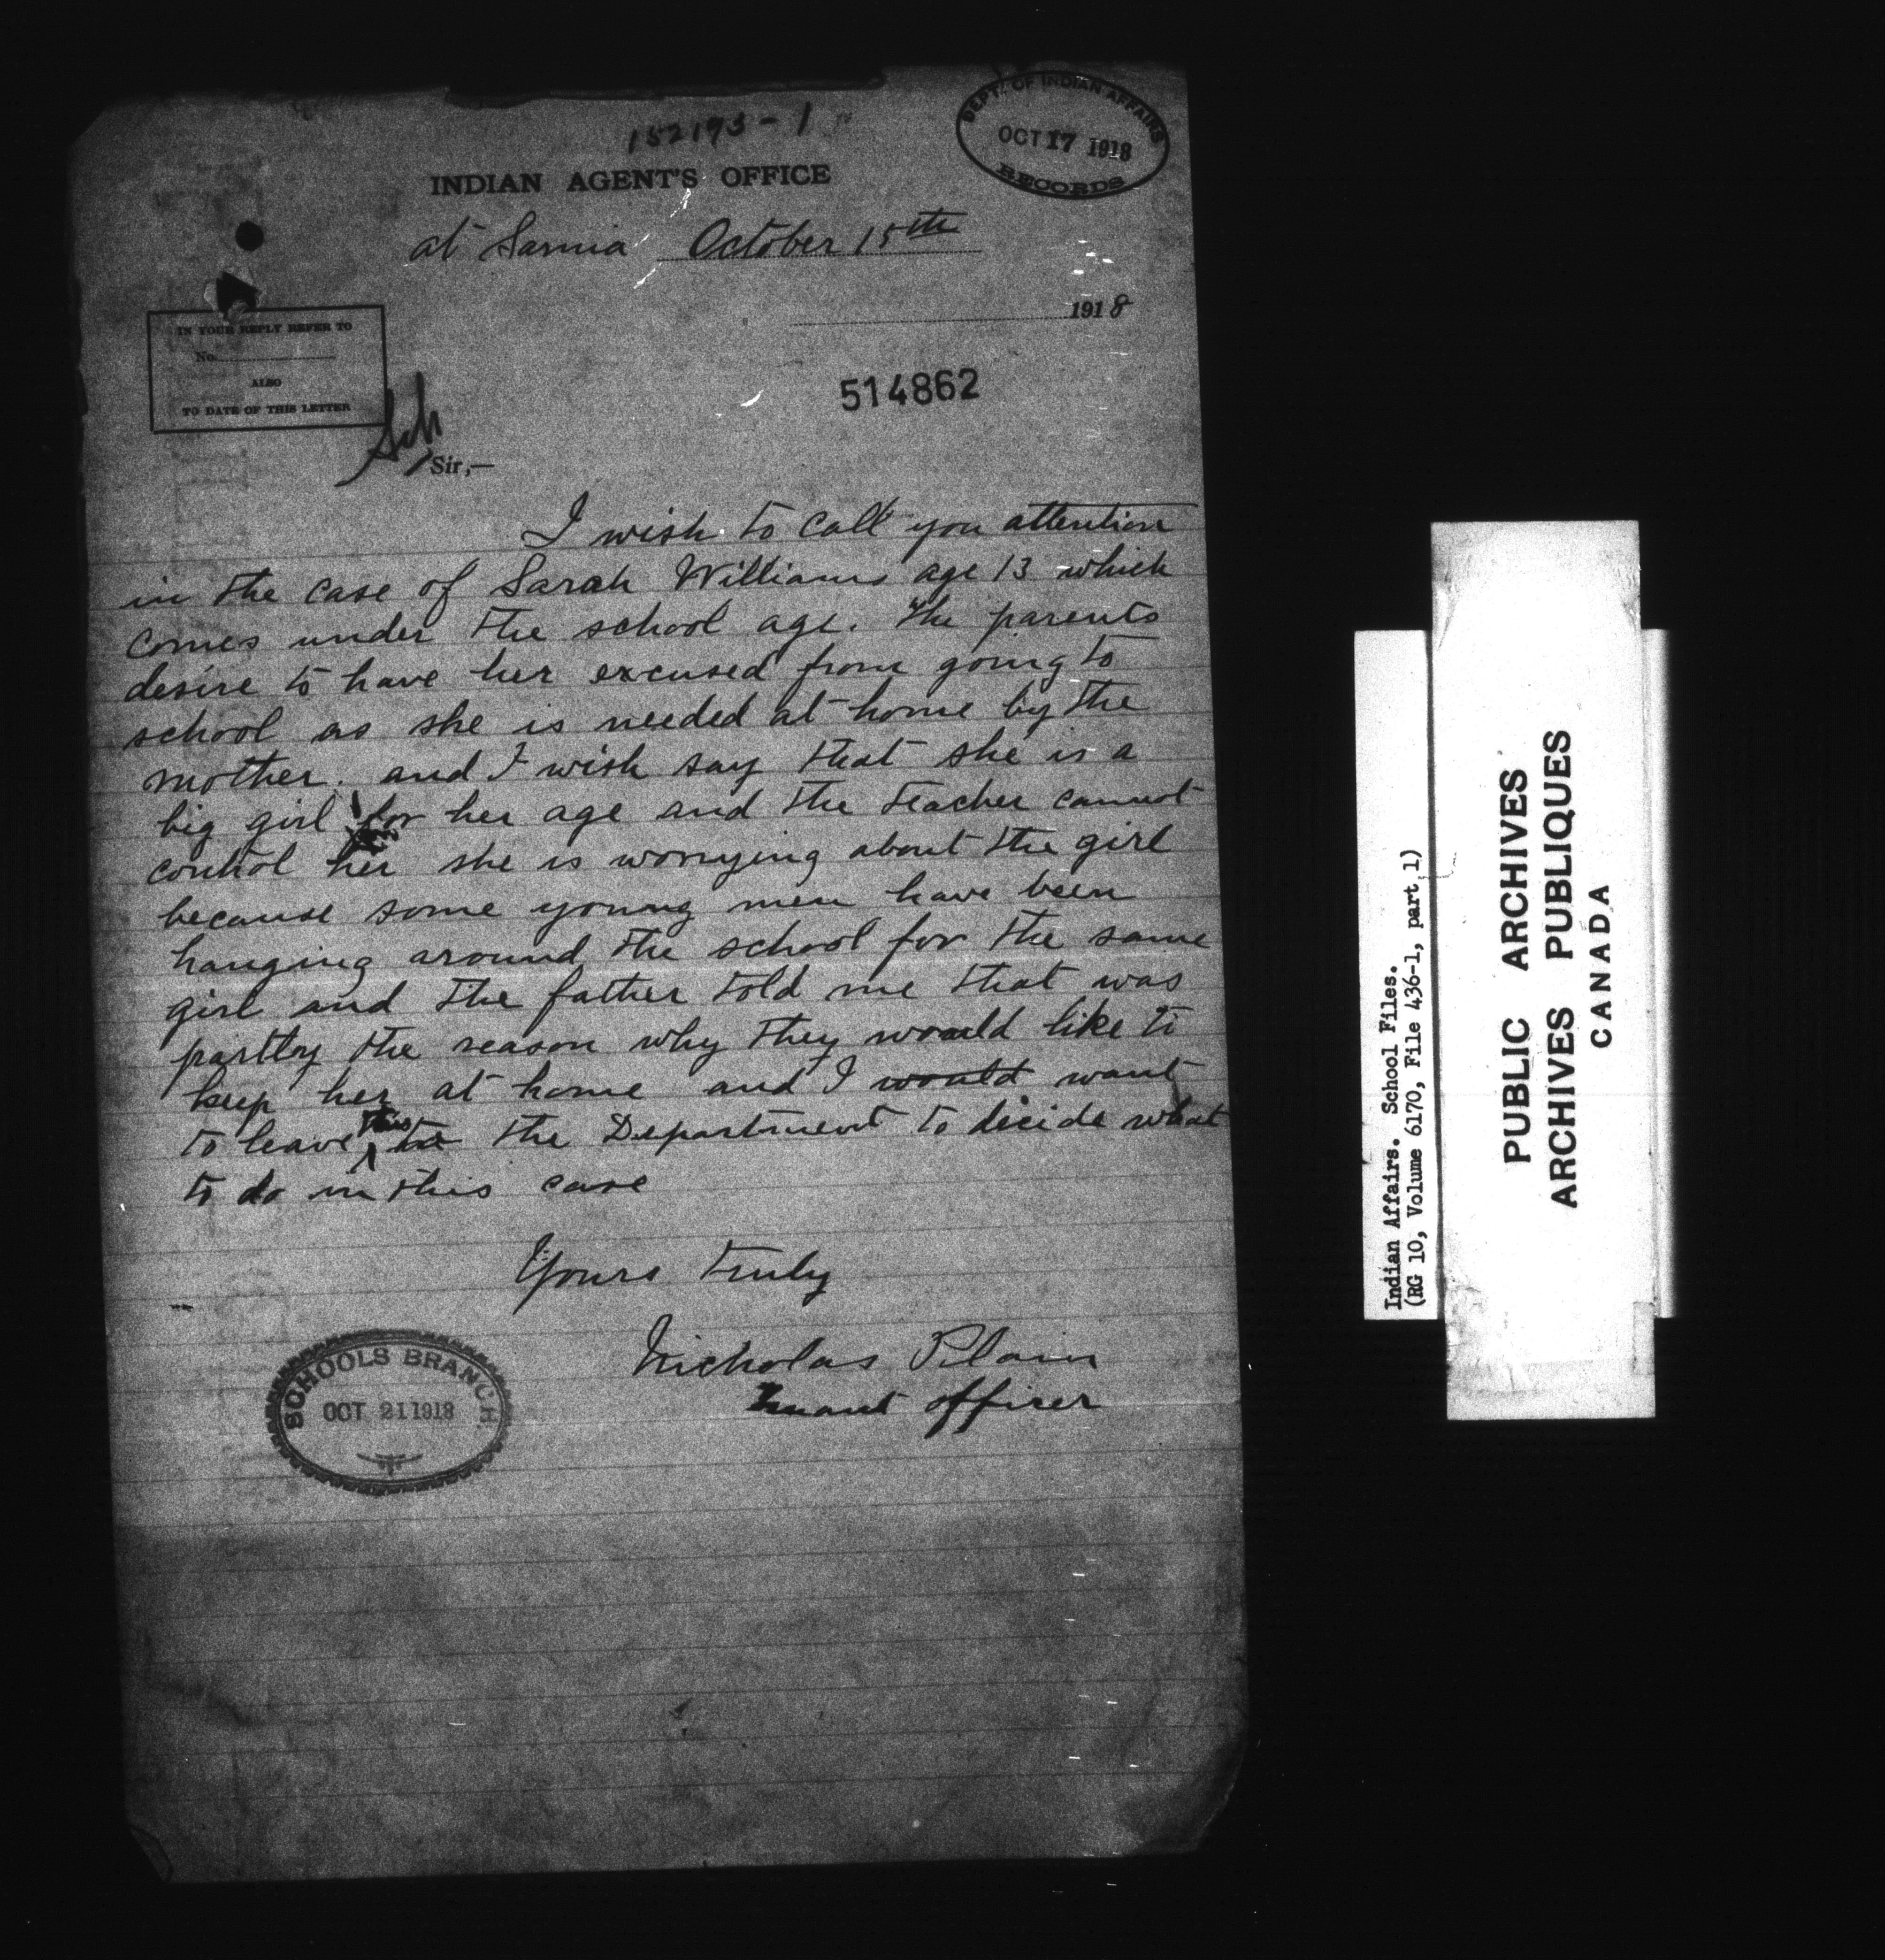 152193-1
DEPT. OF INDIAN AFFAIRS
OCT 17 1918
RECORDS
INDIAN AGENT'S OFFICE
at Sarnia October 15th
1918
IN YOUR REPLY REFER TO
No.
ALSO
TO DATE OF THIS LETTER
514862
Sch
Sir,—
I wish to call you attention
in the case of Sarah Williams age 13 which
comes under the school age. The parents
desire to have her excused from going to
school as she is needed at home by the
mother. and I wish say that she is a
big girl for her age and the teacher cannot
control her she is worrying about the girl
because some young men have been
hanging around the school for the same
girl and the father told me that was
partly the reason why they would like to
keep her at home and I would want
to leave this to the Department to decide what
to do in this case
Yours truly
Nicholas Plain
Truant officer
SCHOOLS BRANCH
OCT 21 1918
Indian Affairs. School Files.
(RG 10, Volume 6170, File 436-1, part 1)
PUBLIC ARCHIVES
ARCHIVES PUBLIQUES
CANADA